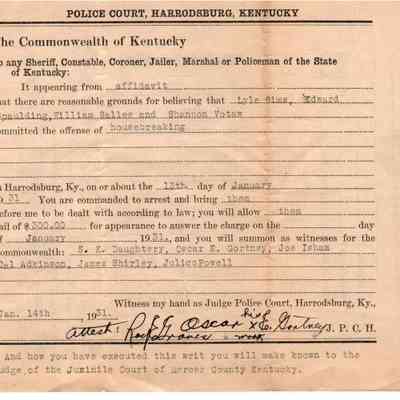 POLICE COURT, HARRODSBURG, KENTUCKY
he Commonwealth of Kentucky
o any Sheriff, Constable, Coroner, Jailer, Marshal or Policeman of the State
of Kentucky:
It appearing from affidavit
hat there are reasonable grounds for believing that Lyle Sims, Edward
Spaulding, William Sallee and Shannon Votaw
ommitted the offense of housebreaking
Harrodsburg, Ky., on or about the 13th day of January
931 You are commanded to arrest and bring them
efore me to be dealt with according to law; you will allow them
ail of $300.00 for appearance to answer the charge on the day
January 1931, and you will summon as witnesses for the
ommonwealth: S. K. Daughtery, Oscar E. Gortney, Joe Isham
Cal Adkinson, James Shirley, Julice Powell
Witness my hand as Judge Police Court, Harrodsburg, Ky.,
Jan. 14th 1931.
attest: Oscar his x E. Gortney J. P. C. H.
mark
And how you have executed this writ you will make known to the
udge of the Juvinile Court of Mercer County Kentucky.